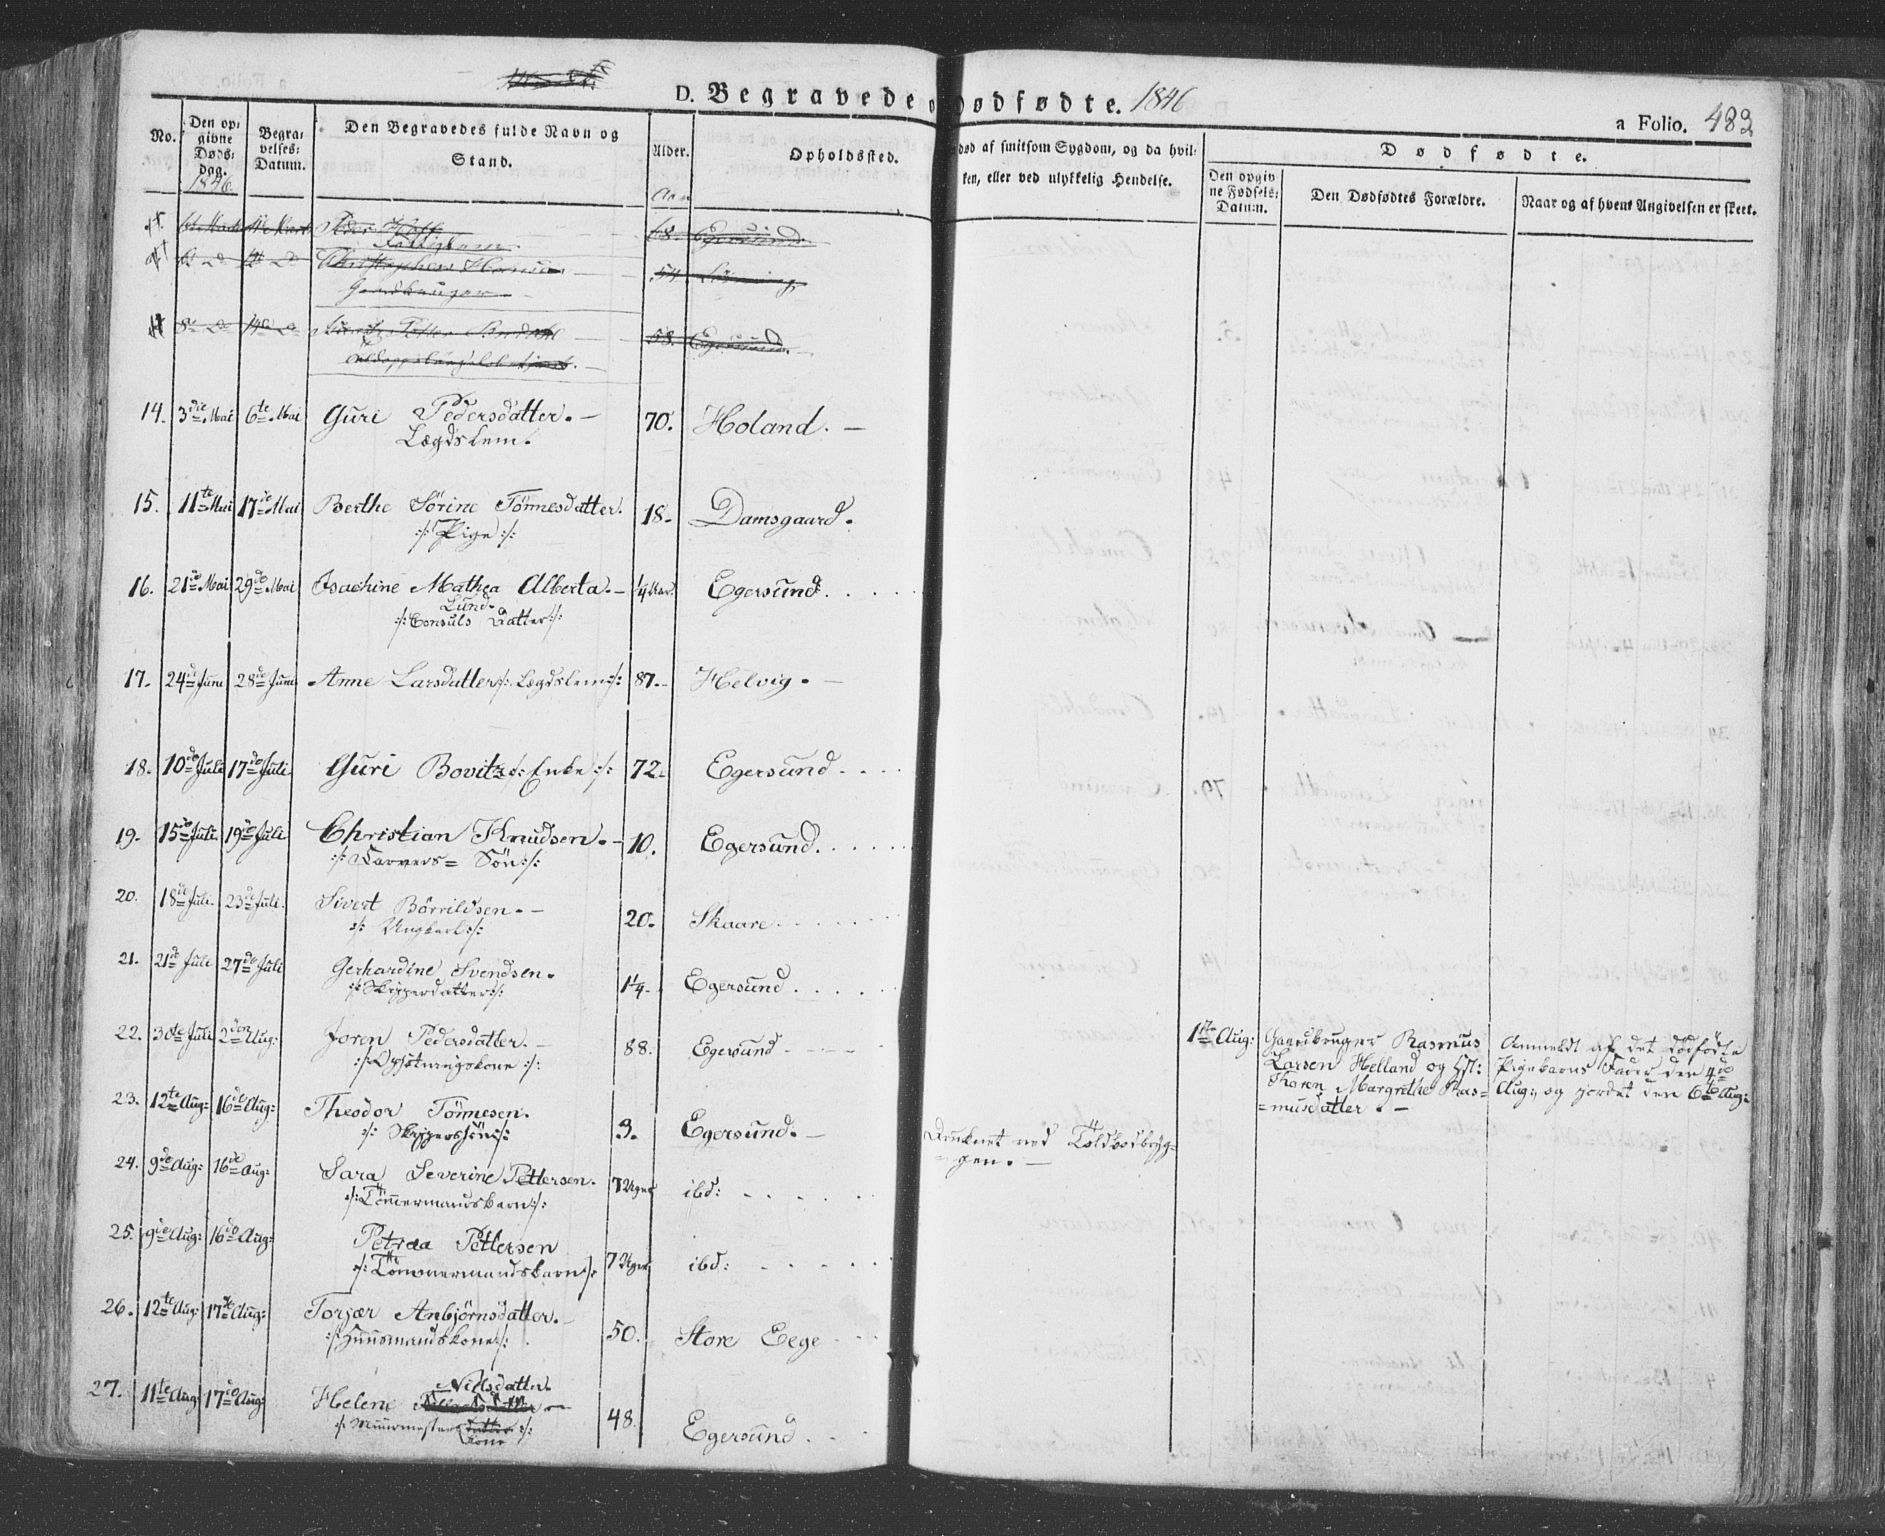 D. Begravede o Dødfødte. 1846
a Folio. 483
No.
Den opgivne Døds-dag. 1846.
Begravelses-Datum.
Den Begravedes fulde Navn og Stand.
Alder.
Aar
Opholdssted.
død af smitsom Sygdom, og da hvil-
ken, eller ved ulykkelig Hendelse.
Dødfødte.
Den opgivne Fødsels-Datum.
Den Dødfødtes Forældre.
Naar og af hvem Angivelsen er skeet.
68. Egersund.
Fattiglem
54
Gaardbruger
8de 14de
58. Egersund.
14. 3die Mai 6te Mai Guri Pedersdatter. 70. Holand.
Lægdslem.
15. 11te Mai 17de Mai Berthe Sörine Tönnesdatter. 18. Damsgaard.
:/: Pige :/:
16. 21de Mai 29de Mai Isachine Mathea Alberta. 1/4 Aar. Egersund.
Lund.
:/: Consuls Datter :/:
17. 24de Juni 28de Juni Anne Larsdatter :/: Lægdslem :/: 87. Helvig.
18. 10de Juli 17de Juli Guri Bovitz :/: Enke :/: 72. Egersund.
19. 15de Juli 19de Juli Christian Knudsen. 10. Egersund.
:/: Farvers= Sön :/:
20. 18de Juli 23de Juli. Sivert Börrildsen. 20. Skaare.
:/: Ungkarl :/:
21. 21de Juli 27de Juli Gerhardine Svendsen. 1 1/4. Egersund.
:/: Skipperdatter :/:
22. 30te Juli 2den Aug: Joren Pedersdatter. 88. Egersund
:/: Opsitningskone :/:
1ste Aug: Gaardbruger Rasmus
Larsen Helland og Hst:
Karen Margrethe Ras-
=musdatter.
Anmeldt af det dödfödte
Pigebarns Fader den 4de
Aug:, og jordet den 6te Aug:
23. 12te Aug: 16de Aug: Theodor Tönnesen. 3. Egersund.
:/: Skipperssön :/:
Druknet ved Toldbodbryg-
gen.
24. 9de Aug: 16de Aug: Sara Severine Pettersen. 7 Uger ibd:
:/: Tömmermandsbarn :/:
25. 9de Aug: 16de Aug: Petraa Pettersen 7 Uger ibd:
:/: Tömmermandsbarn :/:
26. 12te Aug: 17de Aug: Torjær Anbjörnsdatter. 50. Store Eege
:/: Huusmandskone :/:
27. 11te Aug 17de Aug: Helene Nielsdatter. 48. Egersund
:/: Muurmester datter :/:
Kone